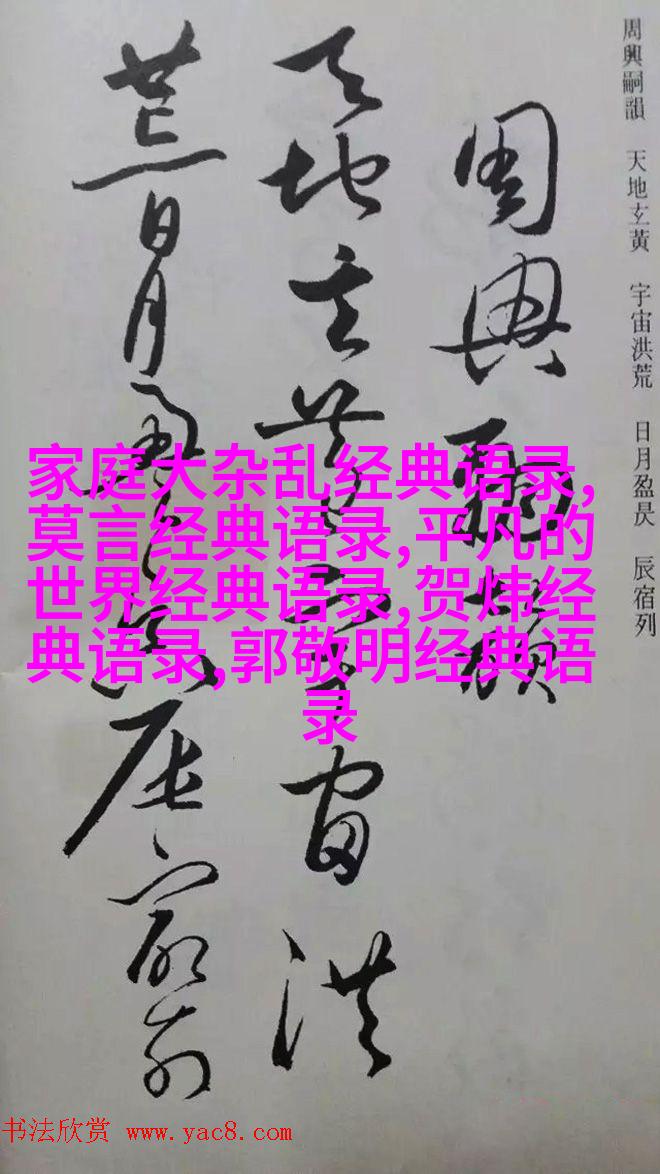 周興嗣韻 天地玄黃 宇宙洪荒 日月盈昃 辰宿列
周興嗣韻
天地玄黃宇宙洪
荒日月盈昃辰宿列
家庭大杂乱经典语录,
莫言经典语录,平凡的
世界经典语录,贺炜经
典语录,郭敬明经典语
录
书法欣赏 www.yac8.com